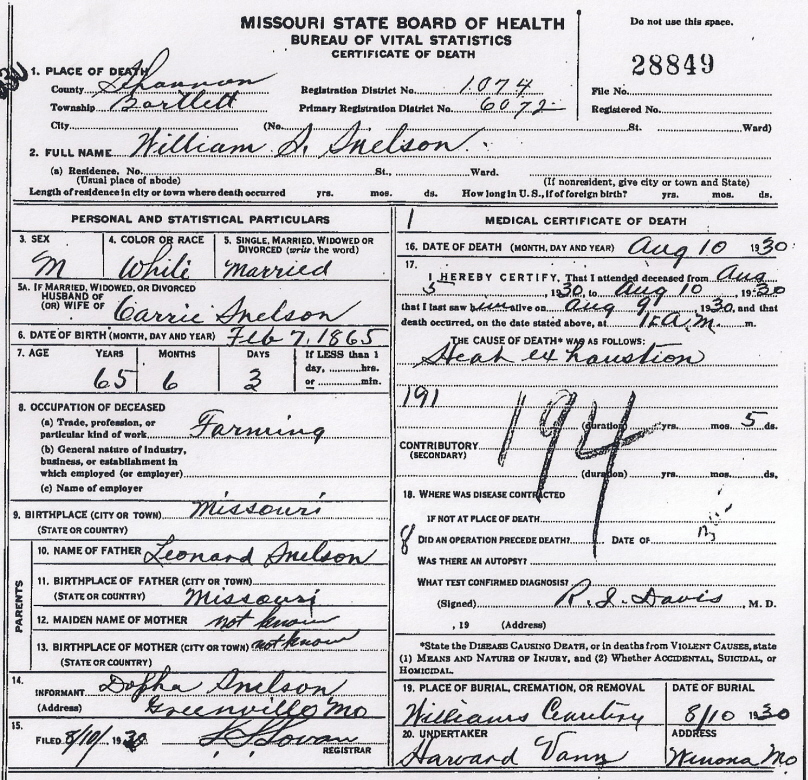 MISSOURI STATE BOARD OF HEALTH
BUREAU OF VITAL STATISTICS
CERTIFICATE OF DEATH
Do not use this space.
28849
1. PLACE OF DEATH
County Shannon Registration District No. 1074 File No.
Township Bartlett Primary Registration District No. 6072 Registered No.
City (No. St. Ward)
2. FULL NAME William S. Snelson
(a) Residence. No. St., Ward.
(Usual place of abode) (If nonresident, give city or town and State)
Length of residence in city or town where death occurred yrs. mos. ds. How long in U.S., if of foreign birth? yrs. mos. ds.
PERSONAL AND STATISTICAL PARTICULARS
3. SEX 4. COLOR OR RACE 5. SINGLE, MARRIED, WIDOWED OR
DIVORCED (write the word)
M White Married
5A. IF MARRIED, WIDOWED, OR DIVORCED
HUSBAND OF
(OR) WIFE OF Carrie Snelson
6. DATE OF BIRTH (MONTH, DAY AND YEAR) Feb 7, 1865
7. AGE YEARS MONTHS DAYS If LESS than 1
day, hrs.
or min.
65 6 3
8. OCCUPATION OF DECEASED
(a) Trade, profession, or
particular kind of work Farming
(b) General nature of industry,
business, or establishment in
which employed (or employer)
(c) Name of employer
9. BIRTHPLACE (CITY OR TOWN) Missouri
(STATE OR COUNTRY)
PARENTS
10. NAME OF FATHER Leonard Snelson
11. BIRTHPLACE OF FATHER (CITY OR TOWN)
(STATE OR COUNTRY) Missouri
12. MAIDEN NAME OF MOTHER not know
13. BIRTHPLACE OF MOTHER (CITY OR TOWN) not know
(STATE OR COUNTRY)
14.
INFORMANT Snelson
(Address) Greenville Mo
15.
FILED 8/10/, 1930
REGISTRAR
1 MEDICAL CERTIFICATE OF DEATH
16. DATE OF DEATH (MONTH, DAY AND YEAR) Aug 10 1930
17.
I HEREBY CERTIFY, That I attended deceased from Aug
5, 1930, to Aug 10, 1930
that I last saw him alive on Aug 9, 1930, and that
death occurred, on the date stated above, at A.M. m.
THE CAUSE OF DEATH* WAS AS FOLLOWS:
Heat exhaustion
191
194
(duration) yrs. mos. 5 ds.
CONTRIBUTORY
(SECONDARY)
(duration) yrs. mos. ds.
18. WHERE WAS DISEASE CONTRACTED
IF NOT AT PLACE OF DEATH
8 DID AN OPERATION PRECEDE DEATH? DATE OF
WAS THERE AN AUTOPSY?
WHAT TEST CONFIRMED DIAGNOSIS?
(Signed) R. I. Davis, M. D.
, 19 (Address)
*State the DISEASE CAUSING DEATH, or in deaths from VIOLENT CAUSES, state
(1) MEANS AND NATURE OF INJURY, and (2) Whether ACCIDENTAL, SUICIDAL, or
HOMICIDAL.
19. PLACE OF BURIAL, CREMATION, OR REMOVAL DATE OF BURIAL
Williams 8/10 1930
20. UNDERTAKER ADDRESS
Harvard Vann Winona Mo